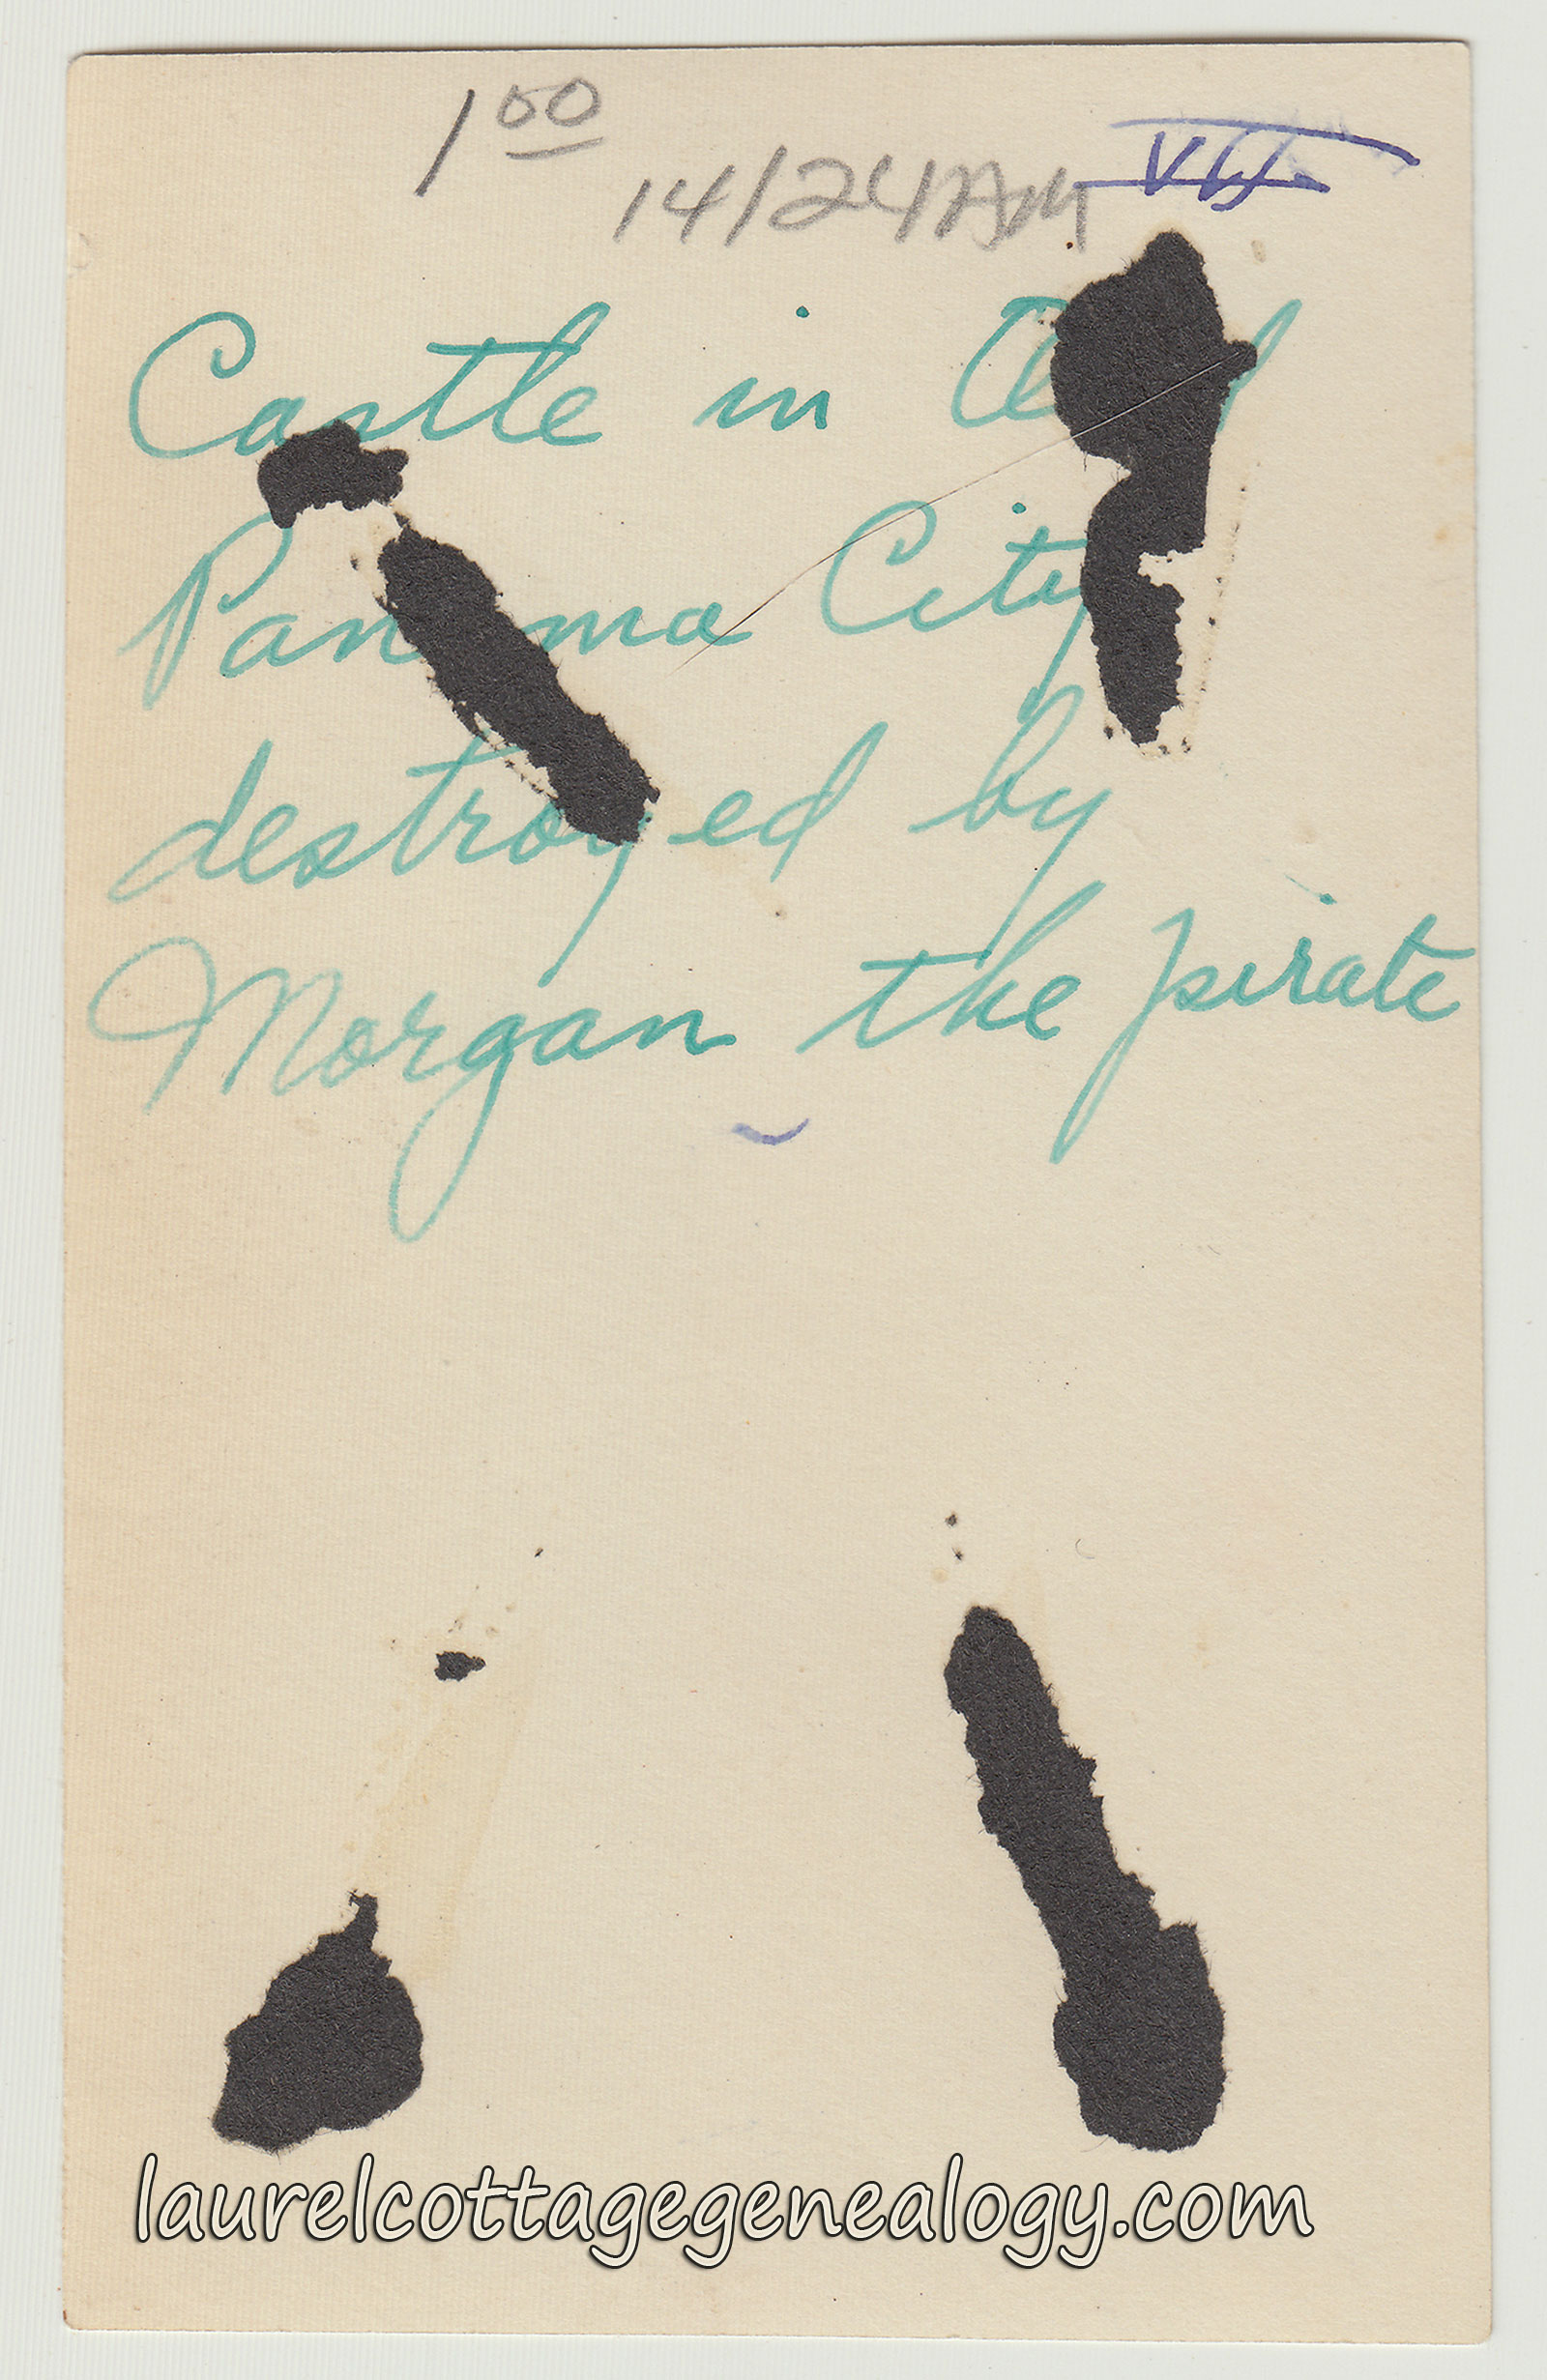 1 00
Castle in Old
Panama City
destroyed by
Morgan the pirate
laurelcottagegenealogy.com